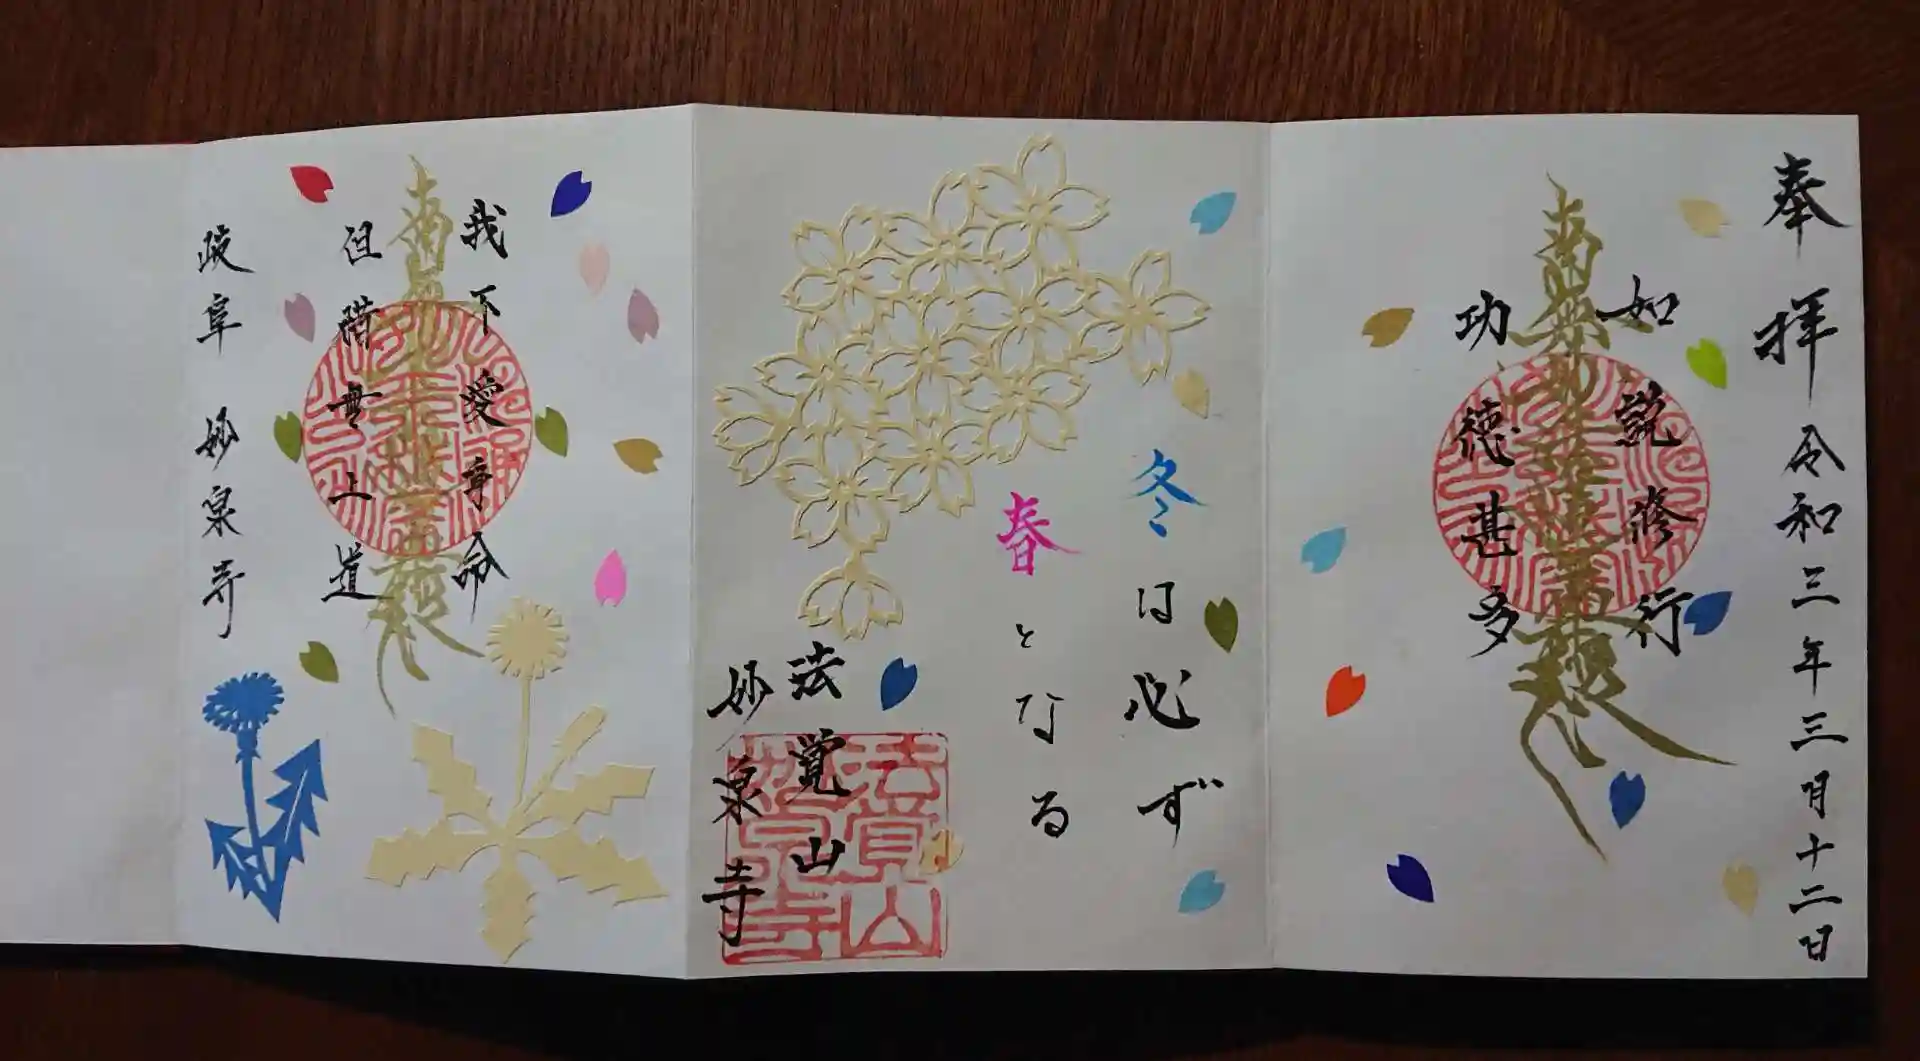 奉拝 令和三年三月十二日
如説修行
南無妙法蓮華経
功徳甚多
冬は必ず
春となる
法覚山
妙泉寺
法覚山
妙泉寺
我不愛身命
南無妙法蓮華経
但惜無上道
岐阜 妙泉寺